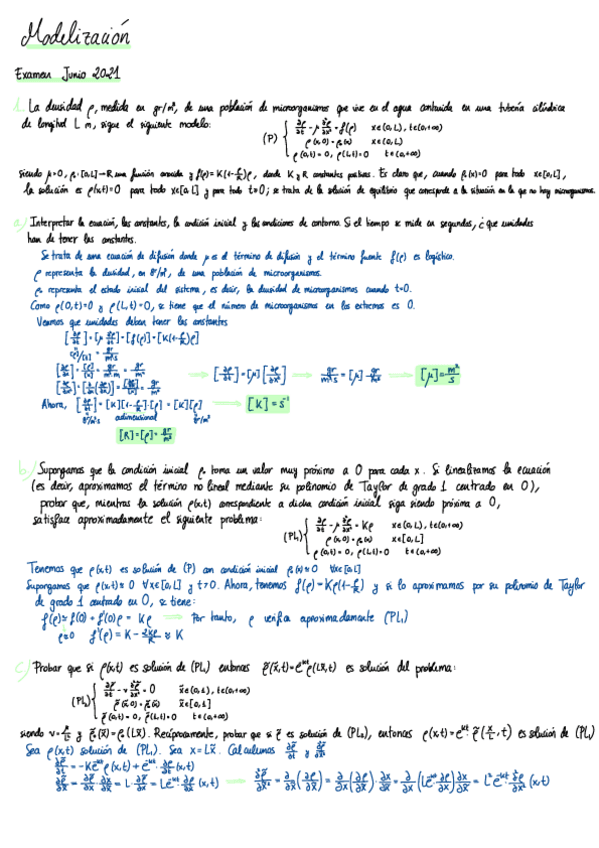 Modelización
Examen Junio 2021
1. La densidad ρ, medida en gr/m³, de una población de microorganismos que vive en el agua contenida en una tubería cilíndrica
de longitud L m, sigue el siguiente modelo:
(P) { ∂ρ/∂t - μ ∂²ρ/∂x² = f(ρ) x∈(0,L), t∈(0,+∞)
ρ(x,0) = ρ₀(x) x∈(0,L)
ρ(0,t) = 0, ρ(L,t) = 0 t∈(0,+∞)
siendo μ>0, ρ₀:[0,L]→R una función conocida y f(ρ) = K(1-ρ/R)ρ, donde K y R constantes positivas. Es claro que, cuando ρ₀(x)=0 para todo x∈[0,L],
la solución es ρ(x,t)=0 para todo x∈[0,L] y para todo t>0; se trata de la solución de equilibrio que corresponde a la situación en la que no hay microorganismos.
a) Interpretar la ecuación, las constantes, la condición inicial y las condiciones de contorno. Si el tiempo se mide en segundos, ¿que unidades
han de tener las constantes.
Se trata de una ecuación de difusión donde μ es el término de difusión y el término fuente f(ρ) es logístico.
ρ representa la densidad, en gr/m³, de una población de microorganismos.
ρ₀ representa el estado inicial del sistema, es decir, la densidad de microorganismos cuando t=0.
Como ρ(0,t)=0 y ρ(L,t)=0, se tiene que el número de microorganismos en los extremos es 0.
Veamos que unidades deben tener las constantes
[∂ρ/∂t] = [μ ∂²ρ/∂x²] = [f(ρ)] = [K(1-ρ/R)ρ]
→ [∂ρ/∂t] = [μ] [∂²ρ/∂x²] → → [μ] = m²/s
Ahora, [∂ρ/∂t] = [K][1-ρ/R]·[ρ] = [K][ρ] → [K] = s⁻¹
adimensional
[R] = [ρ] = gr/m³
b) Supongamos que la condición inicial ρ₀ toma un valor muy próximo a 0 para cada x. Si linealizamos la ecuación
(es decir, aproximamos el término no lineal mediante su polinomio de Taylor de grado 1 centrado en 0),
probar que, mientras la solución ρ(x,t) correspondiente a dicha condición inicial siga siendo próxima a 0,
satisface aproximadamente el siguiente problema:
(PL₁) { ∂ρ/∂t - μ ∂²ρ/∂x² = Kρ x∈(0,L), t∈(0,+∞)
ρ(x,0) = ρ₀(x) x∈[0,L]
ρ(0,t) = 0, ρ(L,t) = 0 t∈(0,+∞)
Tenemos que ρ(x,t) es solución de (P) con condición inicial ρ₀(x)≈0 ∀x∈[0,L]
Supongamos que ρ(x,t)≈0 ∀x∈[0,L] y t>0. Ahora, tenemos f(ρ) = Kρ(1-ρ/R) y si lo aproximamos por su polinomio de Taylor
de grado 1 centrado en 0, se tiene:
f(ρ) ≈ f(0) + f'(0)ρ = Kρ → Por tanto, ρ verifica aproximadamente (PL₁)
ρ≈0 f'(ρ) = K - 2Kρ/R ≈ K
c) Probar que si ρ(x,t) es solución de (PL₁) entonces ρ̃(x̃,t) = e⁻ᴷᵗρ(Lx̃,t) es solución del problema:
(PL₂) { ∂ρ̃/∂t - ν ∂²ρ̃/∂x̃² = 0 x̃∈(0,1), t∈(0,+∞)
ρ̃(x̃,0) = ρ̃₀(x̃) x̃∈[0,1]
ρ̃(0,t) = 0, ρ̃(1,t) = 0 t∈(0,+∞)
siendo ν = μ/L² y ρ̃₀(x̃) = ρ₀(Lx̃). Recíprocamente, probar que si ρ̃ es solución de (PL₂), entonces ρ(x,t) = eᴷᵗ·ρ̃(x/L, t) es solución de (PL₁)
Sea ρ(x,t) solución de (PL₁). Sea x = Lx̃. Calculemos ∂ρ̃/∂t y ∂²ρ̃/∂x̃²
∂ρ̃/∂t = -Ke⁻ᴷᵗρ(x,t) + e⁻ᴷᵗ·∂ρ/∂t (x,t)
∂ρ̃/∂x̃ = ∂ρ̃/∂x·∂x/∂x̃ = L·∂ρ̃/∂x = Le⁻ᴷᵗ ∂ρ/∂x (x,t) → ∂²ρ̃/∂x̃² = ∂/∂x̃(∂ρ̃/∂x̃) = ∂/∂x(∂ρ̃/∂x̃)·∂x/∂x̃ = ∂/∂x(Le⁻ᴷᵗ ∂ρ/∂x)∂x/∂x̃ = L²e⁻ᴷᵗ·∂²ρ/∂x² (x,t)